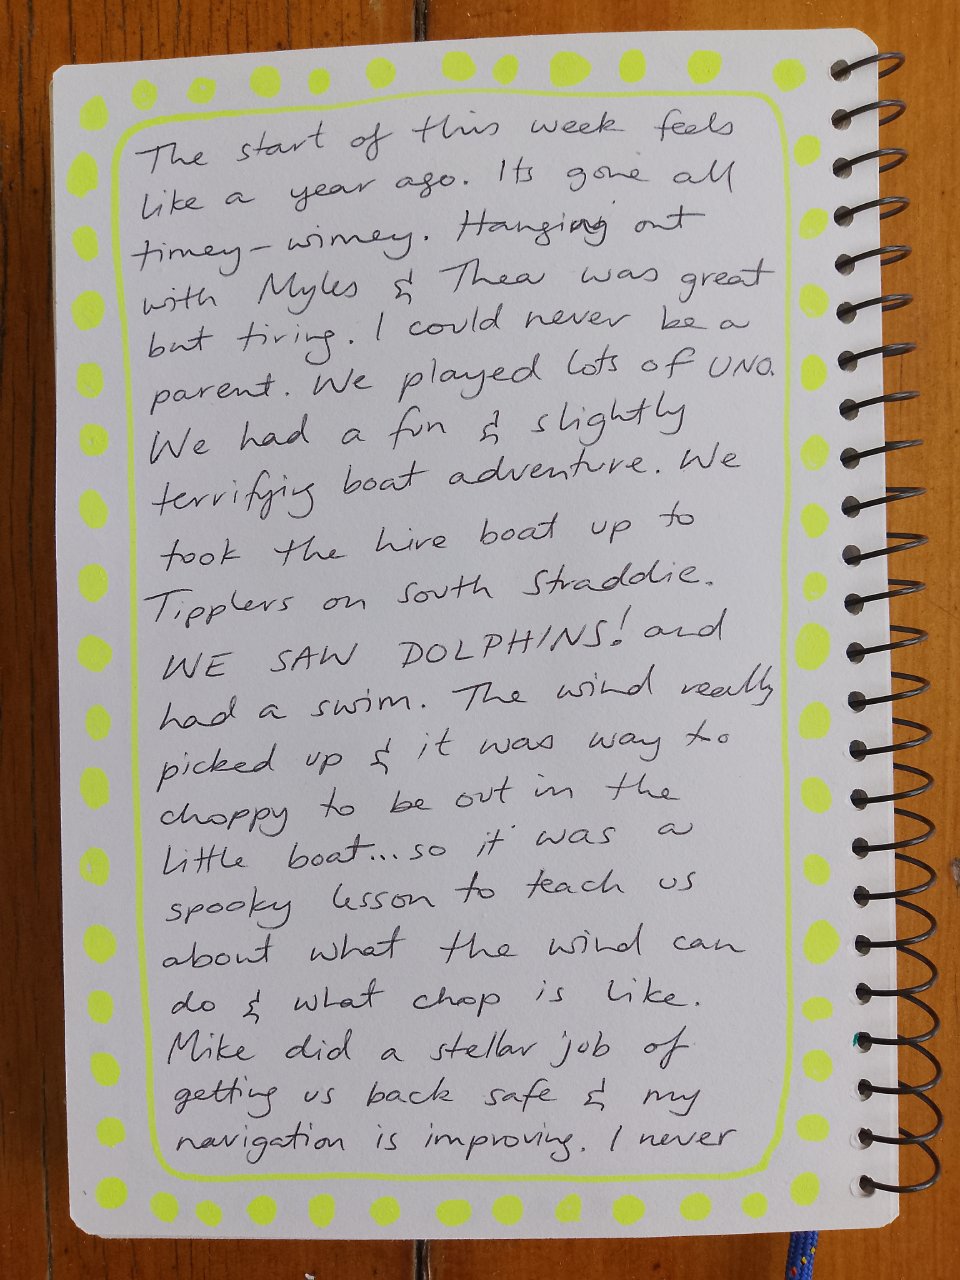 The start of this week feels
like a year ago. Its gone all
timey-wimey. Hanging out
with Myles & Thea was great
but tiring. I could never be a
parent. We played lots of UNO.
We had a fun & slightly
terrifying boat adventure. We
took the hire boat up to
Tipplers on South Straddie.
WE SAW DOLPHINS! and
had a swim. The wind really
picked up & it was way to
choppy to be out in the
little boat...so it was a
spooky lesson to teach us
about what the wind can
do & what chop is like.
Mike did a stellar job of
getting us back safe & my
navigation is improving. I never